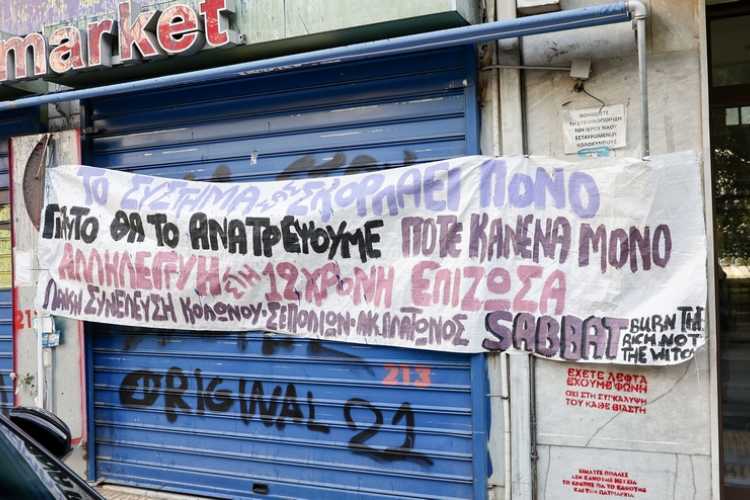 market
ΤΟ ΣΥΣΤΗΜΑ ΣΑΣ ΣΚΟΡΠΑΕΙ ΠΟΝΟ
ΓΙ'ΑΥΤΟ ΘΑ ΤΟ ΑΝΑΤΡΕΨΟΥΜΕ ΠΟΤΕ ΚΑΝΕΝΑ ΜΟΝΟ
ΑΛΛΗΛΕΓΓΥΗ ΣΤΗ 12ΧΡΟΝΗ ΕΠΙΖΩΣΑ
ΛΑΪΚΗ ΣΥΝΕΛΕΥΣΗ ΚΟΛΩΝΟΥ·ΣΕΠΟΛΙΩΝ·ΑΚ.ΠΛΑΤΩΝΟΣ SABBAT
BURN THE
RICH NOT
THE WITCH
213
ORIGINAL 21
ΕΧΕΤΕ ΛΕΦΤΑ
ΕΧΟΥΜΕ ΦΩΝΗ
ΟΧΙ ΣΤΗ ΣΥΓΚΑΛΥΨΗ
ΤΟΥ ΚΑΘΕ ΒΙΑΣΤΗ
ΕΙΜΑΣΤΕ ΠΟΛΛΕΣ